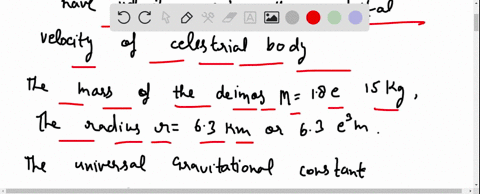 have
velocity of celestrial body
The mass of the deimos M = 1.8 e 15 Kg,
The radius r = 6.3 Km or 6.3 e³m.
The universal gravitational constante